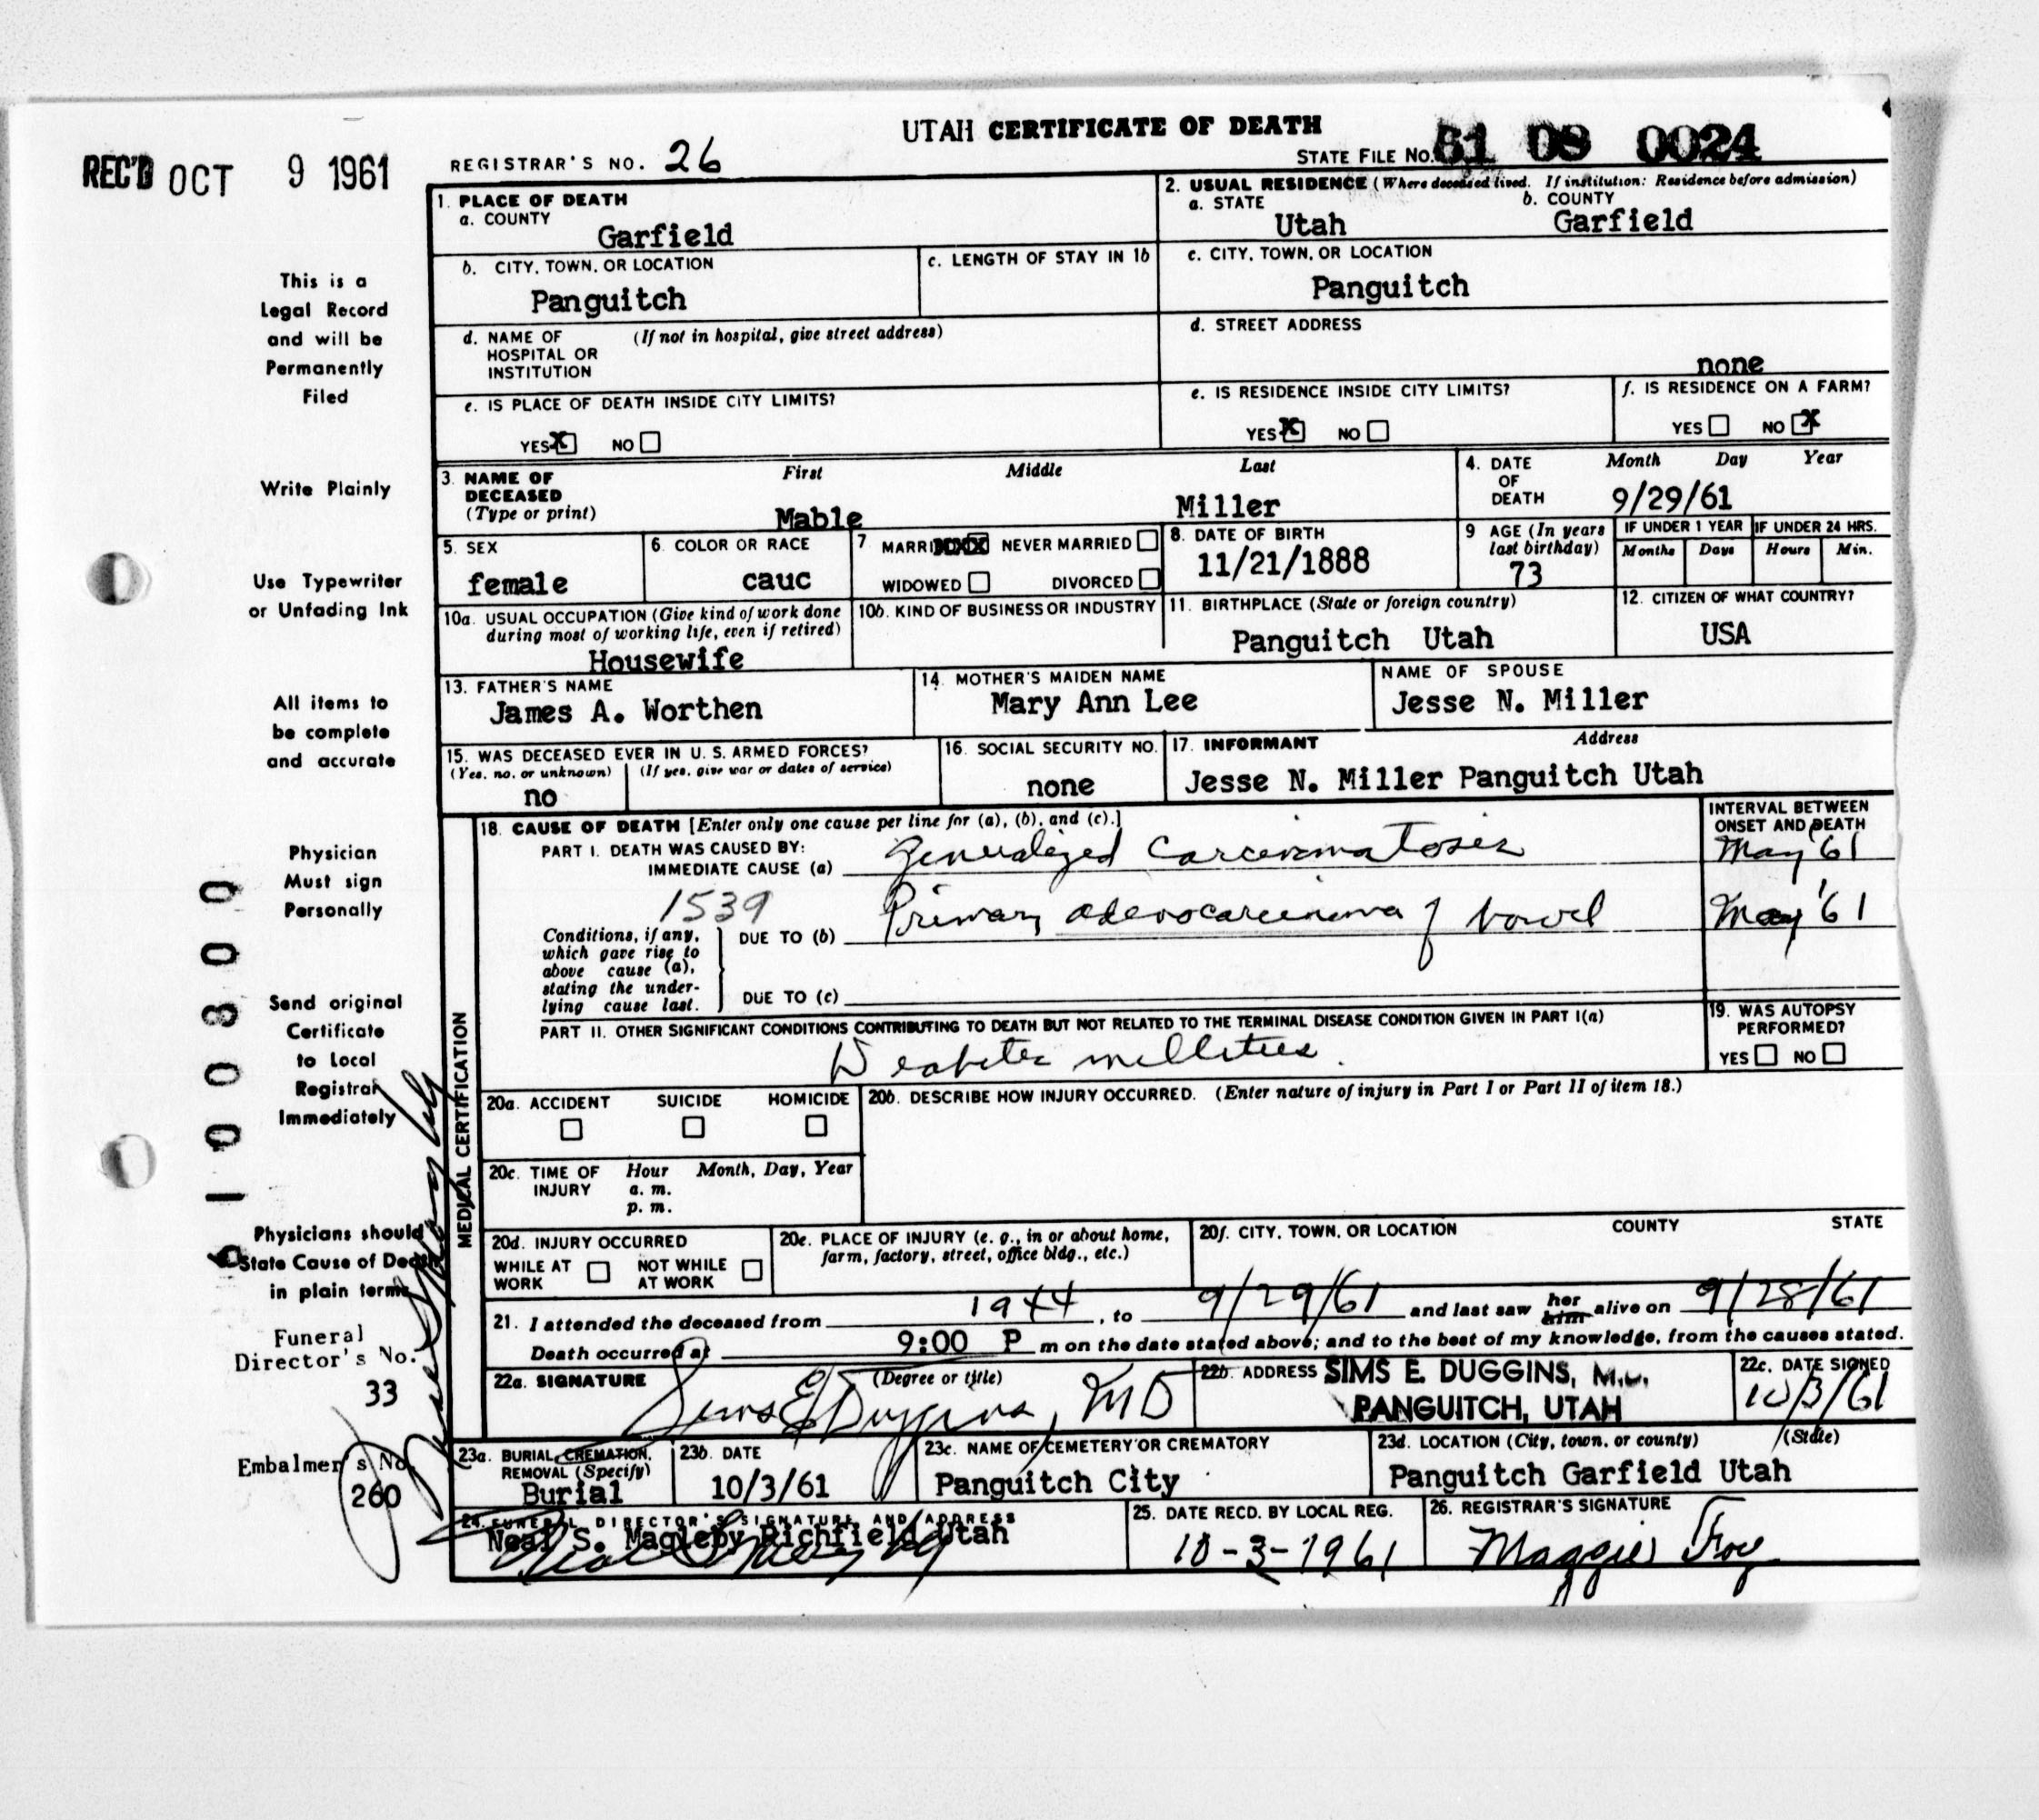 UTAH CERTIFICATE OF DEATH
REC'D OCT 9 1961
REGISTRAR'S NO. 26
STATE FILE NO. 61 09 0024
1. PLACE OF DEATH
a. COUNTY
Garfield
2. USUAL RESIDENCE (Where deceased lived. If institution: Residence before admission)
a. STATE
Utah
b. COUNTY
Garfield
b. CITY, TOWN, OR LOCATION
Panguitch
c. LENGTH OF STAY IN 1b
c. CITY, TOWN, OR LOCATION
Panguitch
d. NAME OF HOSPITAL OR INSTITUTION (If not in hospital, give street address)
d. STREET ADDRESS
none
e. IS PLACE OF DEATH INSIDE CITY LIMITS?
YES X NO
e. IS RESIDENCE INSIDE CITY LIMITS?
YES X NO
f. IS RESIDENCE ON A FARM?
YES NO X
3. NAME OF DECEASED (Type or print)
First Middle Last
Mable Miller
4. DATE OF DEATH
Month Day Year
9/29/61
5. SEX
female
6. COLOR OR RACE
cauc
7. MARRIXXX NEVER MARRIED
WIDOWED DIVORCED
8. DATE OF BIRTH
11/21/1888
9 AGE (In years last birthday)
73
IF UNDER 1 YEAR
Months Days
IF UNDER 24 HRS.
Hours Min.
10a. USUAL OCCUPATION (Give kind of work done during most of working life, even if retired)
Housewife
10b. KIND OF BUSINESS OR INDUSTRY
11. BIRTHPLACE (State or foreign country)
Panguitch Utah
12. CITIZEN OF WHAT COUNTRY?
USA
13. FATHER'S NAME
James A. Worthen
14. MOTHER'S MAIDEN NAME
Mary Ann Lee
NAME OF SPOUSE
Jesse N. Miller
15. WAS DECEASED EVER IN U. S. ARMED FORCES?
(Yes, no, or unknown) (If yes, give war or dates of service)
no
16. SOCIAL SECURITY NO.
none
17. INFORMANT Address
Jesse N. Miller Panguitch Utah
MEDICAL CERTIFICATION
18. CAUSE OF DEATH [Enter only one cause per line for (a), (b), and (c).]
INTERVAL BETWEEN ONSET AND DEATH
PART I. DEATH WAS CAUSED BY:
IMMEDIATE CAUSE (a) Generalized Carcinomatosis May '61
1539
Conditions, if any, which gave rise to above cause (a), stating the underlying cause last.
DUE TO (b) Primary adenocarcinoma of bowel May '61
DUE TO (c)
PART II. OTHER SIGNIFICANT CONDITIONS CONTRIBUTING TO DEATH BUT NOT RELATED TO THE TERMINAL DISEASE CONDITION GIVEN IN PART I(a)
Diabetes mellitus.
19. WAS AUTOPSY PERFORMED?
YES NO
20a. ACCIDENT SUICIDE HOMICIDE
20b. DESCRIBE HOW INJURY OCCURRED. (Enter nature of injury in Part I or Part II of item 18.)
20c. TIME OF INJURY
Hour Month, Day, Year
a. m.
p. m.
20d. INJURY OCCURRED
WHILE AT WORK NOT WHILE AT WORK
20e. PLACE OF INJURY (e. g., in or about home, farm, factory, street, office bldg., etc.)
20f. CITY, TOWN, OR LOCATION COUNTY STATE
21. I attended the deceased from 1944, to 9/29/61 and last saw her him alive on 9/28/61
Death occurred at 9:00 P m on the date stated above; and to the best of my knowledge, from the causes stated.
22a. SIGNATURE (Degree or title)
Sims E Duggins, MD
22b. ADDRESS SIMS E. DUGGINS, M.D.
PANGUITCH, UTAH
22c. DATE SIGNED
10/3/61
23a. BURIAL, CREMATION, REMOVAL (Specify)
Burial
23b. DATE
10/3/61
23c. NAME OF CEMETERY OR CREMATORY
Panguitch City
23d. LOCATION (City, town, or county) (State)
Panguitch Garfield Utah
24. FUNERAL DIRECTOR'S SIGNATURE AND ADDRESS
Neal S. Magleby Richfield Utah
Neal S Magleby
25. DATE RECD. BY LOCAL REG.
10-3-1961
26. REGISTRAR'S SIGNATURE
Maggie Foy
This is a
Legal Record
and will be
Permanently
Filed
Write Plainly
Use Typewriter
or Unfading Ink
All items to
be complete
and accurate
Physician
Must sign
Personally
Send original
Certificate
to Local
Registrar
Immediately
Physicians should
State Cause of Death
in plain terms
Funeral
Director's No.
33
Embalmer's No.
260